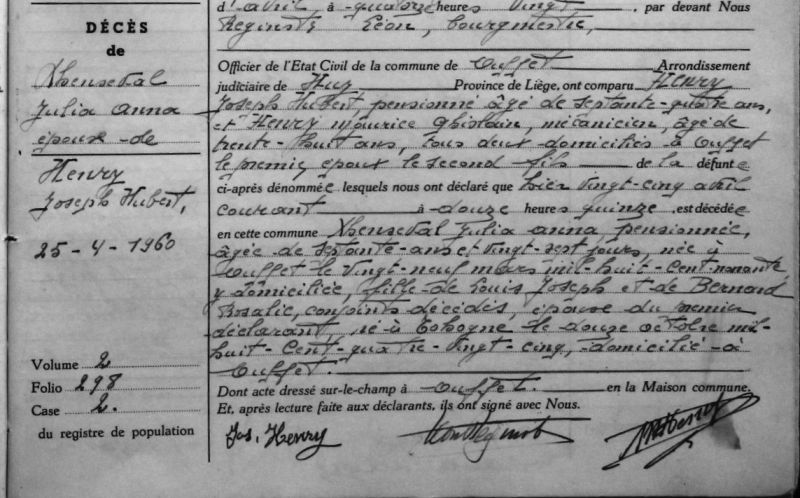 DÉCÈS
de
Xhenseval
Julia Anna
épouse de
Henry
Joseph Hubert,
25-4-1960
Volume 2
Folio 298
Case 2.
du registre de population
d'avril, à quatorze heures vingt, par devant Nous
Reginster Léon, bourgmestre,
Officier de l'Etat Civil de la commune de Ouffet Arrondissement
judiciaire de Huy Province de Liège, ont comparu Henry
Joseph Hubert, pensionné, âgé de septante-quatre ans,
et Henry Maurice Ghislain, mécanicien, âgé de
trente-huit ans, tous deux domiciliés à Ouffet
le premier époux le second fils de la défunte
ci-après dénommée lesquels nous ont déclaré que hier vingt-cinq avril
courant à douze heures quinze est décédée
en cette commune Xhenseval Julia Anna, pensionnée,
âgée de septante-ans et vingt-sept jours, née à
Ouffet le vingt-neuf mars mil-huit-cent-nonante,
y domiciliée, fille de Louis Joseph et de Bernard
Rosalie, conjoints décédés, épouse du premier
déclarant, né à le douze octobre mil-
huit-cent-quatre-vingt-cinq, domicilié à
Ouffet.
Dont acte dressé sur-le-champ à Ouffet. en la Maison commune.
Et, après lecture faite aux déclarants, ils ont signé avec Nous.
Jos. Henry